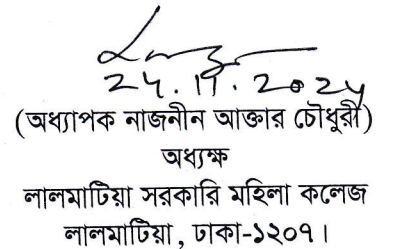 24.11.2024
(অধ্যাপক নাজনীন আক্তার চৌধুরী)
অধ্যক্ষ
লালমাটিয়া সরকারি মহিলা কলেজ
লালমাটিয়া, ঢাকা-১২০৭।